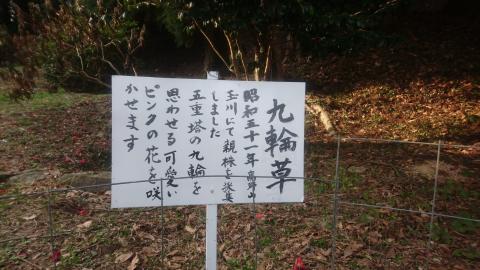 九輪草
昭和五十一年高野山
玉川にて親株を採集
しました
五重塔の九輪を
思わせる可愛い
ピンクの花を咲
かせます